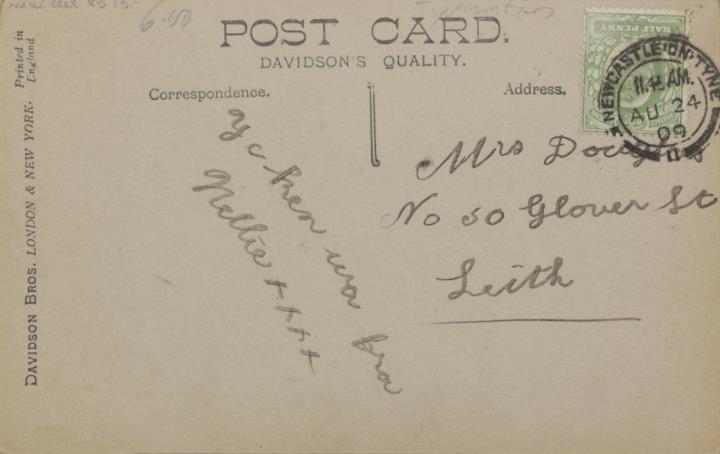 6.00
POST CARD.
DAVIDSON'S QUALITY.
Correspondence.
Address.
HALF PENNY
NEWCASTLE·ON·TYNE
11.45 AM.
AU 24
09
Mrs
No 50 Glover St
Leith
Ye ken wa fra
Nellie ++++
DAVIDSON BROS. LONDON & NEW YORK.
Printed in
England